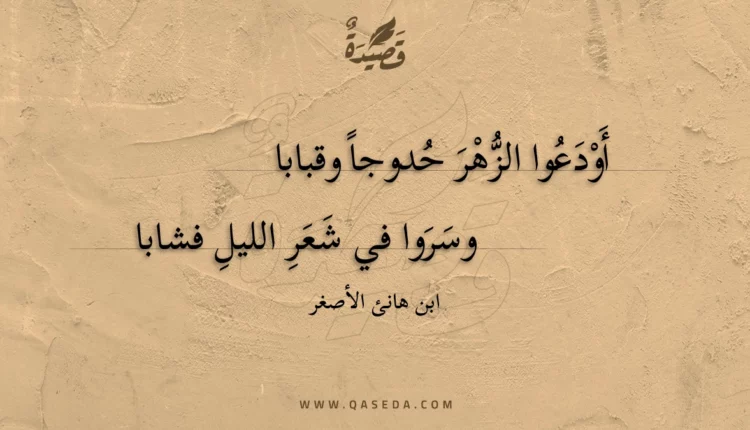 قصيدة
أَوْدَعُوا الزُّهْرَ حُدوجاً وقبابا
وسَرَوا في شَعَرِ الليلِ فشابا
ابن هانئ الأصغر
WWW.QASEDA.COM